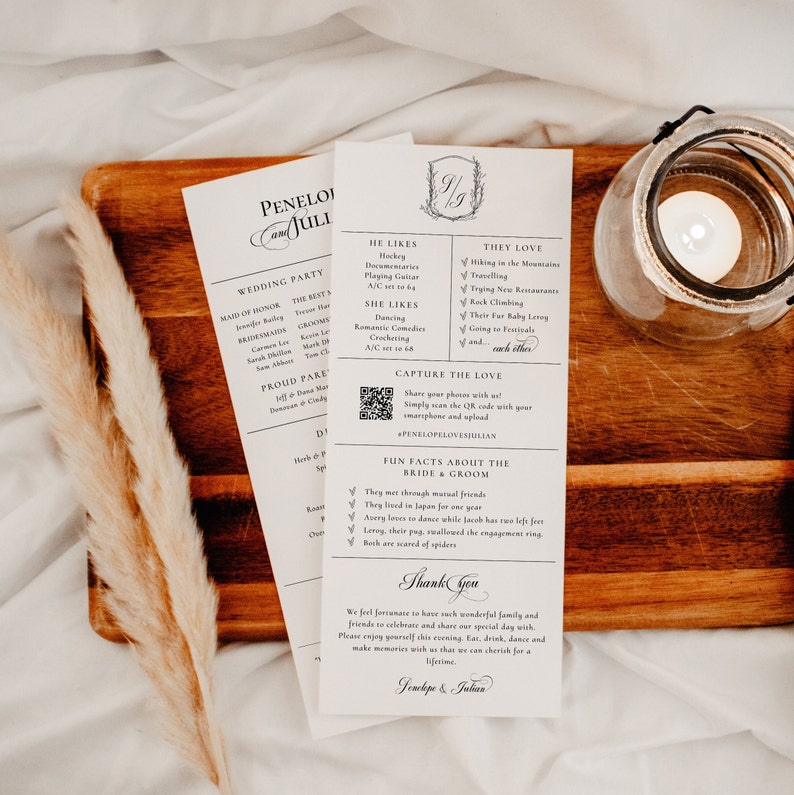 PENELOP
and JULI
WEDDING PARTY
MAID OF HONOR
Jennifer Bailey
BRIDESMAIDS
Carmen Lee
Sarah Dhillon
Sam Abbott
THE BEST M
Trevor Har
GROOMS
Kevin Le
Mark Dh
Tom Cl
PROUD PARE
Jeff & Dana Mar
Donovan & Cindy
D
Herb &
Sp
Roas
Ove
P/J
HE LIKES
Hockey
Documentaries
Playing Guitar
A/C set to 64
SHE LIKES
Dancing
Romantic Comedies
Crocheting
A/C set to 68
THEY LOVE
Hiking in the Mountains
Travelling
Trying New Restaurants
Rock Climbing
Their Fur Baby Leroy
Going to Festivals
and... each other
CAPTURE THE LOVE
Share your photos with us!
Simply scan the QR code with your
smartphone and upload
#PENELOPELOVESJULIAN
FUN FACTS ABOUT THE
BRIDE & GROOM
They met through mutual friends
They lived in Japan for one year
Avery loves to dance while Jacob has two left feet
Leroy, their pug, swallowed the engagement ring.
Both are scared of spiders
Thank You
We feel fortunate to have such wonderful family and
friends to celebrate and share our special day with.
Please enjoy yourself this evening. Eat, drink, dance and
make memories with us that we can cherish for a
lifetime.
Penelope & Julian